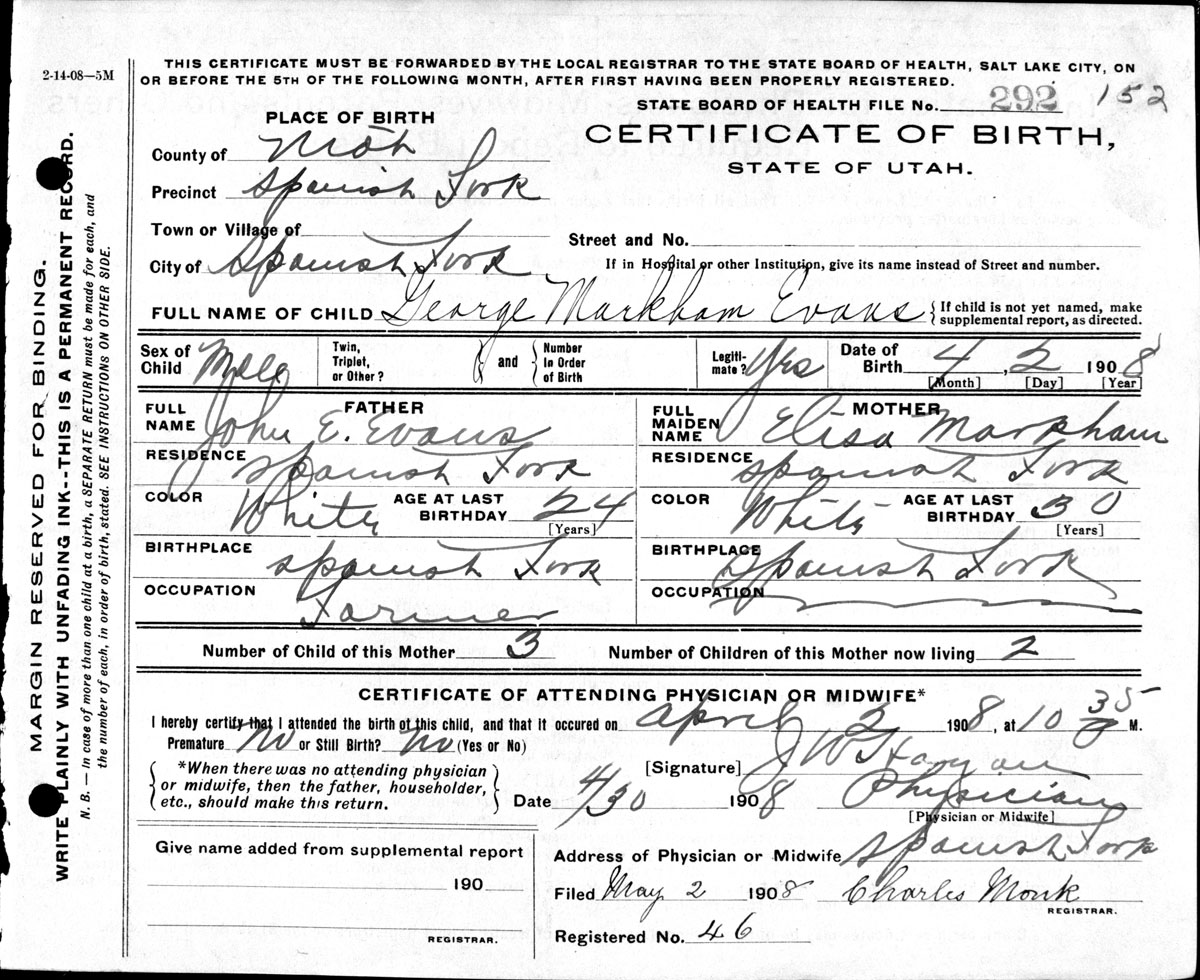 2-14-08—5M
THIS CERTIFICATE MUST BE FORWARDED BY THE LOCAL REGISTRAR TO THE STATE BOARD OF HEALTH, SALT LAKE CITY, ON
OR BEFORE THE 5TH OF THE FOLLOWING MONTH, AFTER FIRST HAVING BEEN PROPERLY REGISTERED.
STATE BOARD OF HEALTH FILE No. 292 152
PLACE OF BIRTH
CERTIFICATE OF BIRTH,
STATE OF UTAH.
County of Utah
Precinct Spanish Fork
Town or Village of
Street and No.
City of Spanish Fork
If in Hospital or other Institution, give its name instead of Street and number.
FULL NAME OF CHILD George Markham Evans { If child is not yet named, make
supplemental report, as directed.
Sex of Child Male
Twin, Triplet, or Other? { and } Number In Order of Birth
Legitimate? Yes
Date of Birth 4, 2 1908
[Month] [Day] [Year]
FATHER
FULL NAME John E. Evans
RESIDENCE Spanish Fork
COLOR White AGE AT LAST BIRTHDAY 24
[Years]
BIRTHPLACE Spanish Fork
OCCUPATION Farmer
MOTHER
FULL MAIDEN NAME Elisa Markham
RESIDENCE Spanish Fork
COLOR White AGE AT LAST BIRTHDAY 30
[Years]
BIRTHPLACE Spanish Fork
OCCUPATION
Number of Child of this Mother 3 Number of Children of this Mother now living 2
CERTIFICATE OF ATTENDING PHYSICIAN OR MIDWIFE*
I hereby certify that I attended the birth of this child, and that it occured on April 2 1908, at 10 35 M.
Premature No or Still Birth? No (Yes or No)
{ *When there was no attending physician
or midwife, then the father, householder,
etc., should make this return. }
[Signature] J W
Date 4/30 1908 Physician
[Physician or Midwife]
Give name added from supplemental report
190
REGISTRAR.
Address of Physician or Midwife Spanish Fork
Filed May 2 1908 Charles Monk
REGISTRAR.
Registered No. 46
MARGIN RESERVED FOR BINDING.
WRITE PLAINLY WITH UNFADING INK--THIS IS A PERMANENT RECORD.
N. B. — In case of more than one child at a birth, a SEPARATE RETURN must be made for each, and
the number of each, in order of birth, stated. SEE INSTRUCTIONS ON OTHER SIDE.